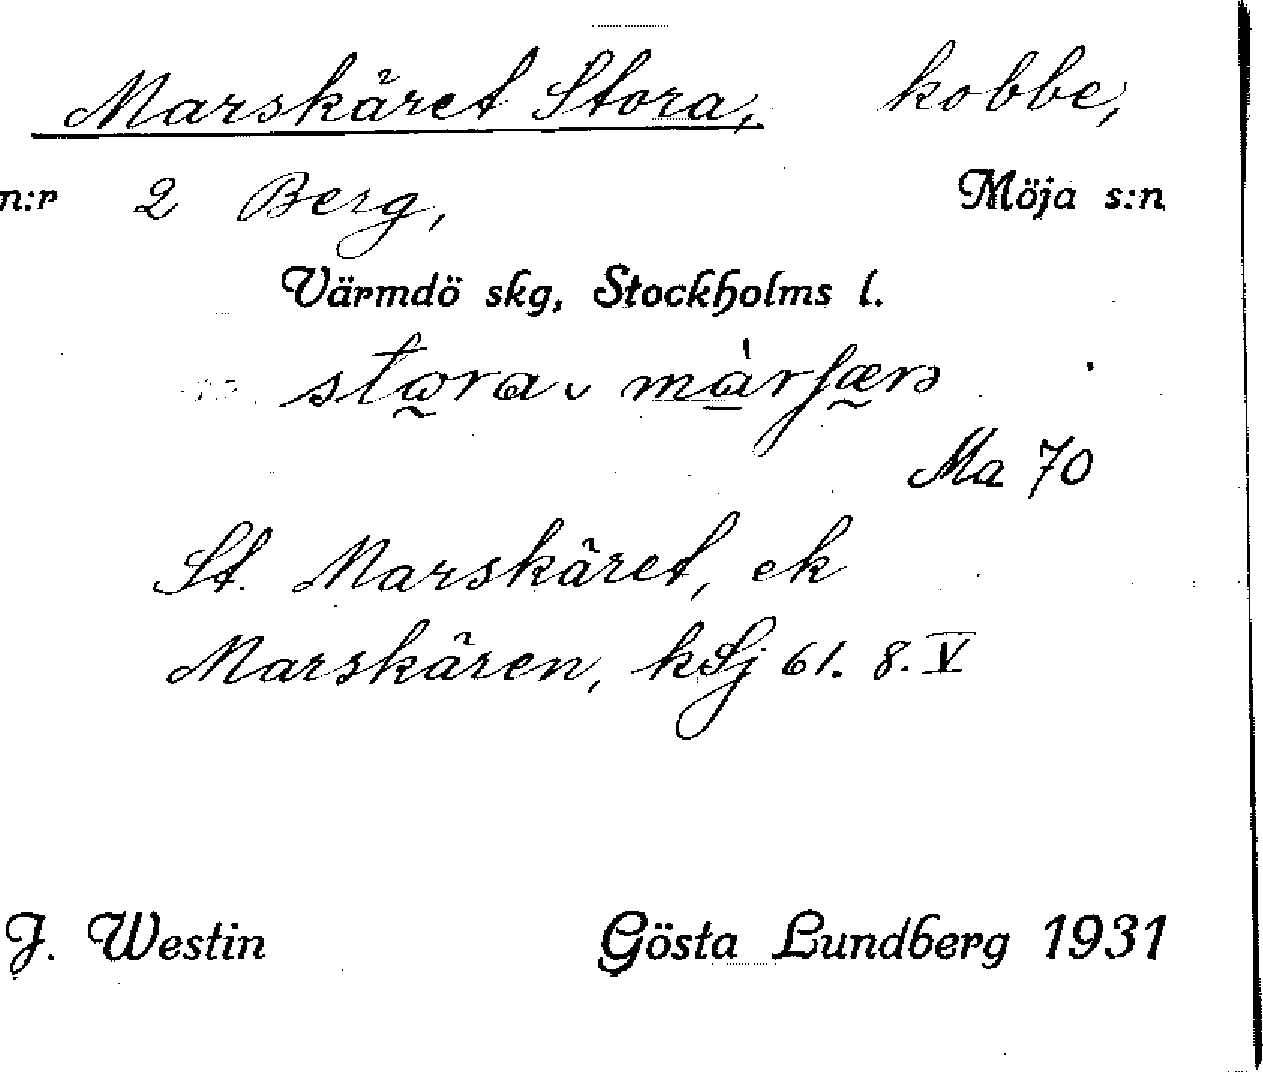 Marskäret Stora, kobbe,
n:r 2 Berg, Möja s:n
Värmdö skg, Stockholms l.
Ma 70
St. Marskäret, ek
Marskären, kSj 61. 8. V
J. Westin Gösta Lundberg 1931